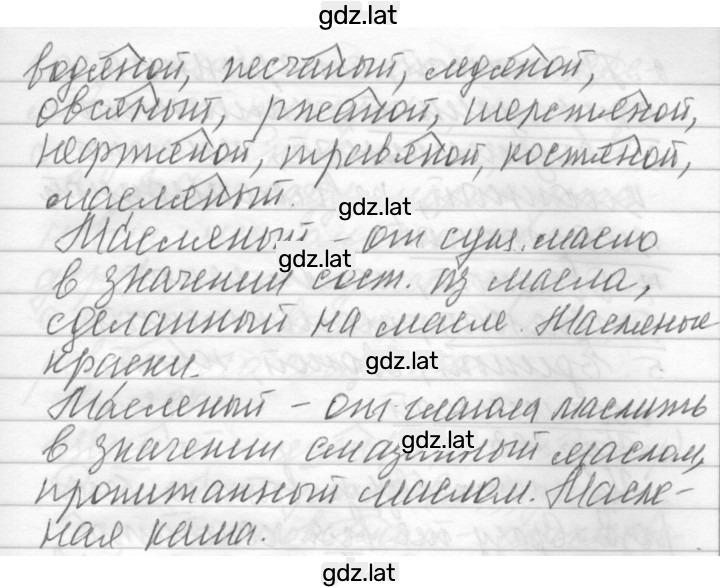 gdz.lat
водяной, песчаный, ледяной,
овсяный, ржаной, шерстяной,
нефтяной, травяной, костяной,
масляный.
gdz.lat
Масляный - от сущ. масло
gdz.lat
в значении сост. из масла,
сделанный на масле. Масляные
краски.
gdz.lat
Масленый - от глагола маслить
gdz.lat
в значении смазанный маслом,
пропитанный маслом. Масле-
ная каша.
gdz.lat